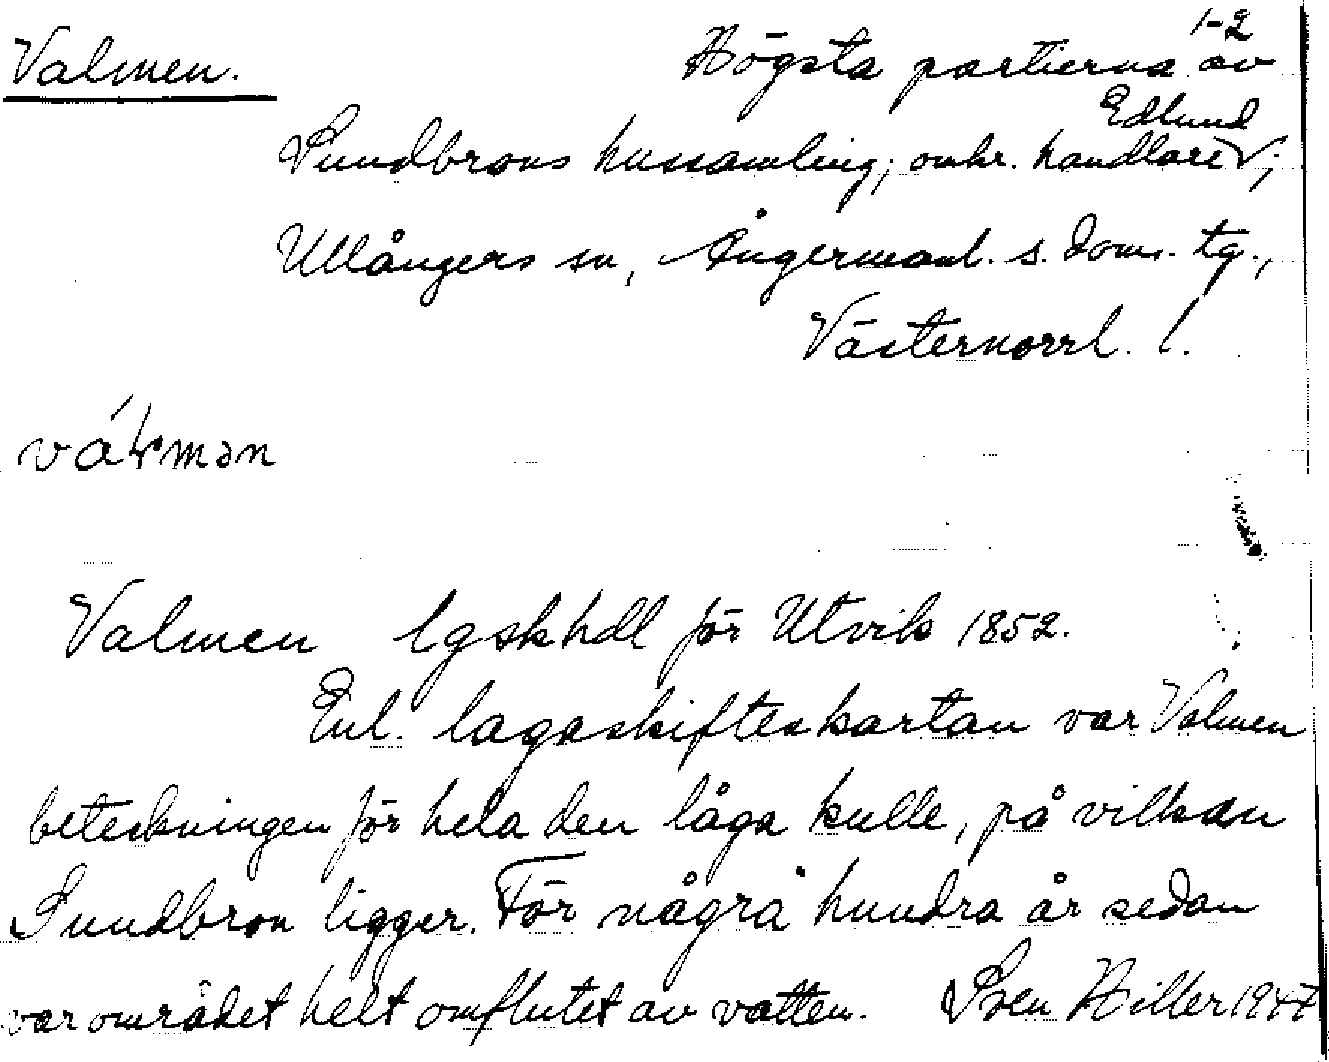 Valmen. Högsta partierna av 1-2
Sundbrons hussamling; omkr. handlare Edlund;
Ullångers sn, Ångermanl. s. doms. tg.,
Västernorrl. l.
Valmen lgskhdl för Utvik 1852.
Enl. lagaskifteskartan var Valmen
beteckningen för hela den låga kulle, på vilken
Sundbron ligger. För några hundra år sedan
var området helt omflutet av vatten. Sven Hiller 1947